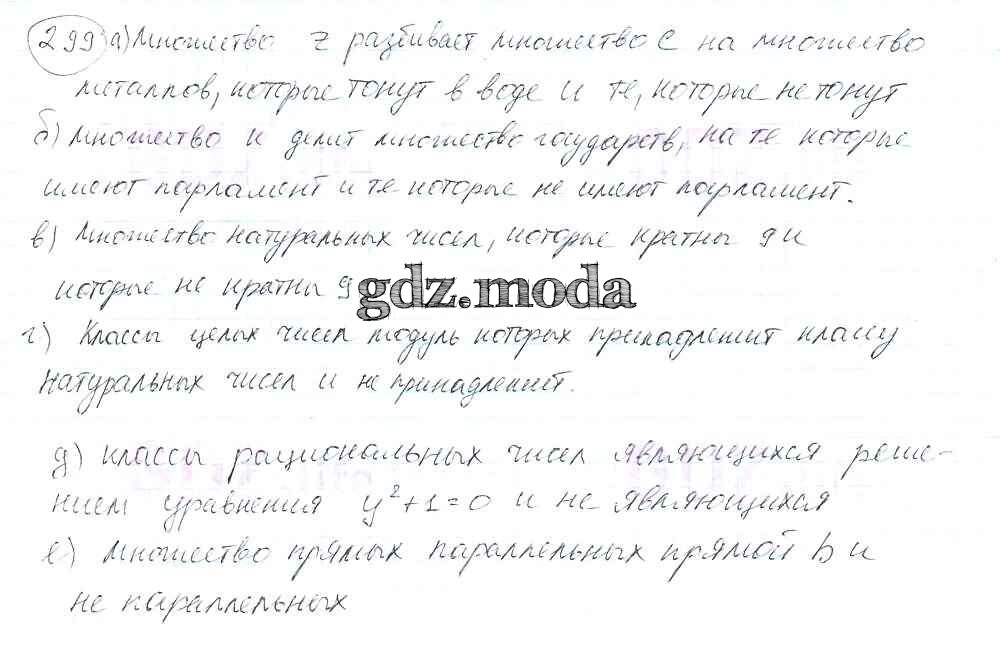 299 а) Множество Z разбивает множество С на множество
металлов, которые тонут в воде и те, которые не тонут
б) Множество К делит множество государств, на те которые
имеют парламент и те которые не имеют парламент.
в) Множество натуральных чисел, которые кратны 9 и
которые не кратны 9
gdz.moda
г) Классы целых чисел модуль которых принадлежит классу
натуральных чисел и не принадлежит.
д) классы рациональных чисел являющихся реше-
нием уравнения y²+1=0 и не являющихся
е) Множество прямых параллельных прямой b и
не параллельных